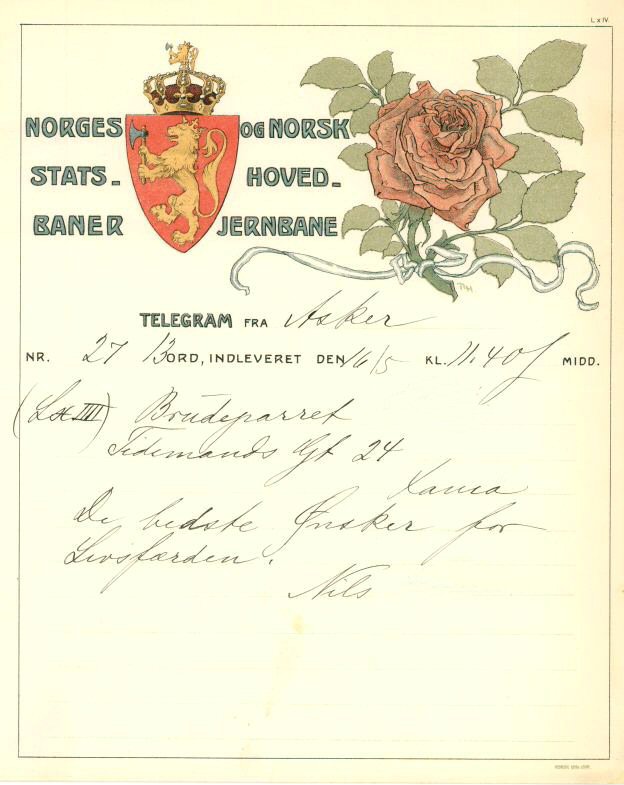 L. x IV.
NORGES OG NORSK
STATS- HOVED-
BANER JERNBANE
TELEGRAM FRA Asker
NR. 27 13 ORD, INDLEVERET DEN 16/5 KL. 11.40 f MIDD.
(Lx IIII) Brudeparret
Tidemands Gt 24
Xania
De bedste Ønsker for
Livsfærden.
Nils